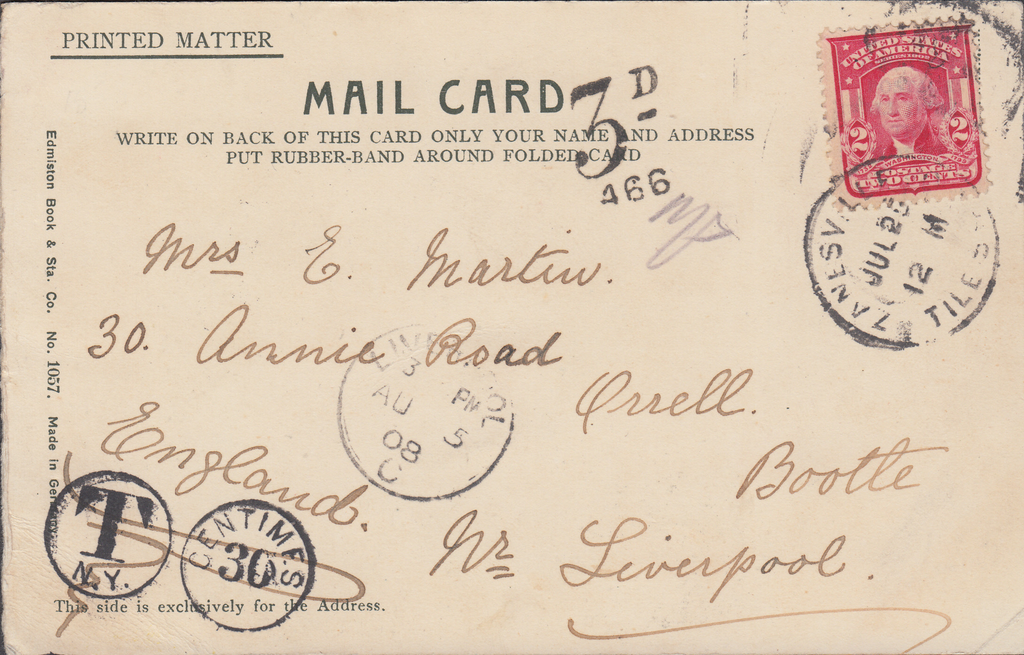 PRINTED MATTER
MAIL CARD
WRITE ON BACK OF THIS CARD ONLY YOUR NAME AND ADDRESS
PUT RUBBER-BAND AROUND FOLDED CARD
3D
466
UNITED STATES
OF AMERICA
SERIES 1902
2 2
WASHINGTON
POSTAGE
TWO CENTS
ZANESVILLE
JUL 25
12 M
TILE
Mrs E. Martin.
30. Annie Road
Orrell.
Bootle
Nr Liverpool.
England.
LIVERPOOL
3 PM
AU 5
08
C
T
N.Y.
CENTIMES
30
This side is exclusively for the Address.
Edmiston Book & Sta. Co. No. 1057. Made in Ger